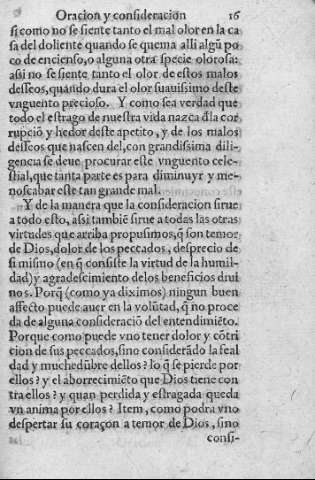 Oracion y consideracion 16
si como no se siente tanto el mal olor en la ca
sa del doliente quando se quema alli algũ po
co de encienso, o alguna otra specie olorosa:
assi no se siente tanto el olor de estos malos
desseos, quando dura el olor suauissimo deste
vnguento precioso. Y como sea verdad que
todo el estrago de nuestra vida nazca d̃la cor
rupciõ y hedor deste apetito, y de los malos
desseos que nascen del, con grandissima dili-
gencia se deue procurar este vnguento cele-
stial, que tanta parte es para diminuyr y me-
noscabar este tan grande mal.
Y de la manera que la consideracion sirue
a todo esto, assi tambiẽ sirue a todas las otras
virtudes que arriba propusimos, q̃ son temor
de Dios, dolor de los peccados, desprecio de
si mismo (en q̃ consiste la virtud de la humil-
dad) y agradescimiento de los beneficios diui
nos. Porq̃ (como ya diximos) ningun buen
affecto puede auer en la volũtad, q̃ no proce
da de alguna consideraciõ del entendimiẽto.
Porque como puede vno tener dolor y cõtri
cion de sus peccados, sino considerãdo la feal
dad y muchedũbre dellos? lo q̃ se pierde por
ellos? y el aborrecimiẽto que Dios tiene con
tra ellos? y quan perdida y estragada queda
vn anima por ellos? Item, como podra vno
despertar su coraçon a temor de Dios, sino
consi-